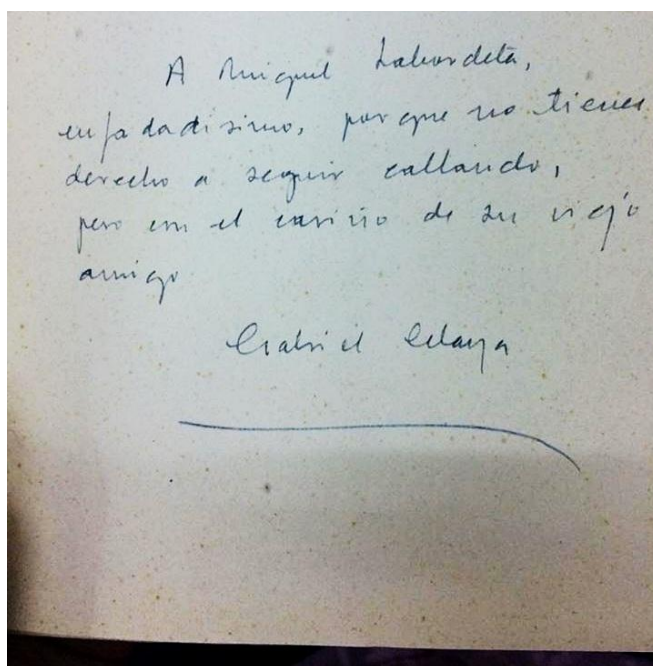 A Miguel Labordeta,
enfadadisimo, porque no tienes
derecho a seguir callando,
pero con el cariño de su viejo
amigo
Gabriel Celaya